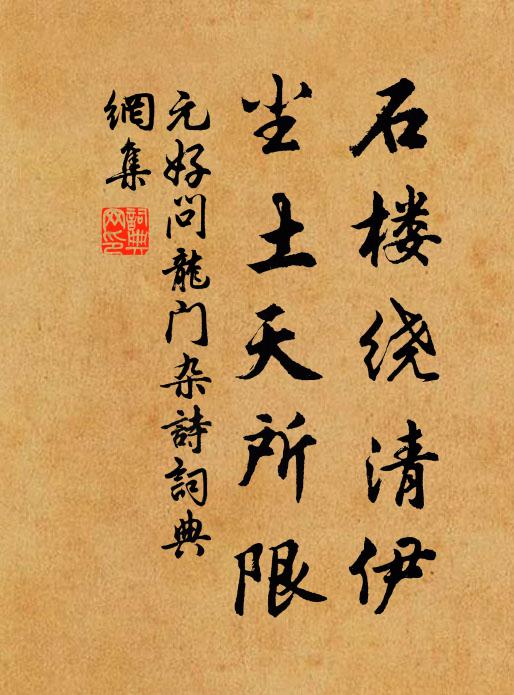 石楼绕清伊
尘土天所限
元好问龍门杂詩詞典
網集
詞典
网印